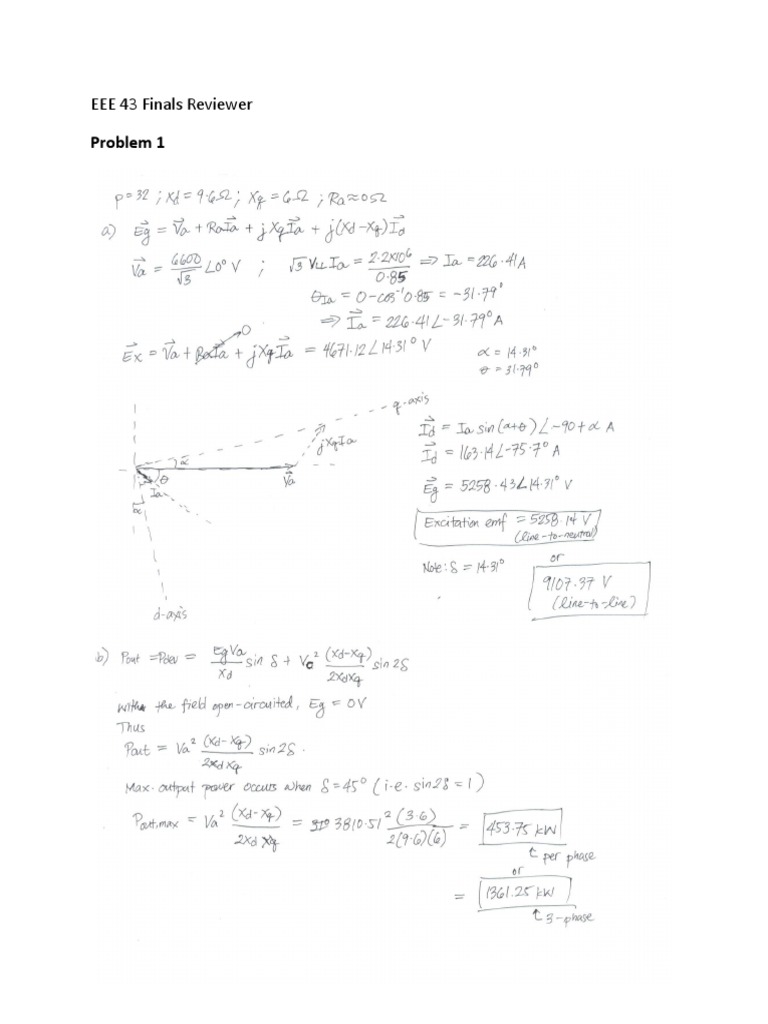 EEE 43 Finals Reviewer
Problem 1
p=32 ; Xd = 9.6Ω ; Xq = 6Ω ; Ra≈0Ω
a) Eg = Va + RaIa + jXqIa + j(Xd-Xq)Id
Va = 6600/√3 ∠0° V ; √3 VLL Ia = 2.2x10⁶/0.85 ⇒ Ia = 226.41A
θIa = 0-cos⁻¹0.85 = -31.79°
⇒ Ia = 226.41∠-31.79° A
Ex = Va + RaIa + jXqIa = 4671.12∠14.31° V
0
α = 14.31°
θ = 31.79°
q-axis
jXqIa
α
θ
Va
Ia
α
d-axis
Id = Ia sin(α+θ)∠-90+α A
Id = 163.14∠-75.7° A
Eg = 5258.43∠14.31° V
Excitation emf = 5258.14 V
(line-to-neutral)
Note: δ = 14.31°
or
9107.37 V
(line-to-line)
b) Pout = Pdev = EgVa/Xd sin δ + Va² (Xd-Xq)/2XdXq sin2δ
With the field open-circuited, Eg = 0V
Thus
Pout = Va² (Xd-Xq)/2XdXq sin2δ.
Max. output power occurs when δ=45° (i.e. sin2δ = 1)
Pout,max = Va² (Xd-Xq)/2Xd Xq = 3810.51² (3.6)/2(9.6)(6) = 453.75 kW
↑ per phase
or
= 1361.25 kW
↑ 3-phase